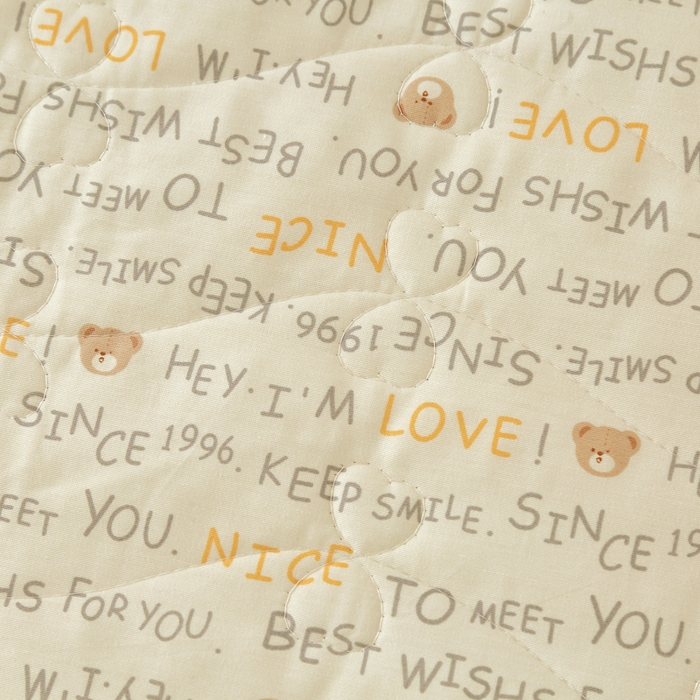 FOR YOU. BEST WISHS
LOVE HEY.I'M
! LOVE
WISHS FOR YOU. BEST WISHS
TO MEET YOU. NICE TO MEET
KEEP SMILE. SINCE 1996. KEEP SMILE.
! HEY.I'M LOVE!
SINCE 1996. KEEP SMILE. SINCE
MEET YOU. NICE TO MEET YOU.
FOR YOU. BEST WISHS
HEY.I'M